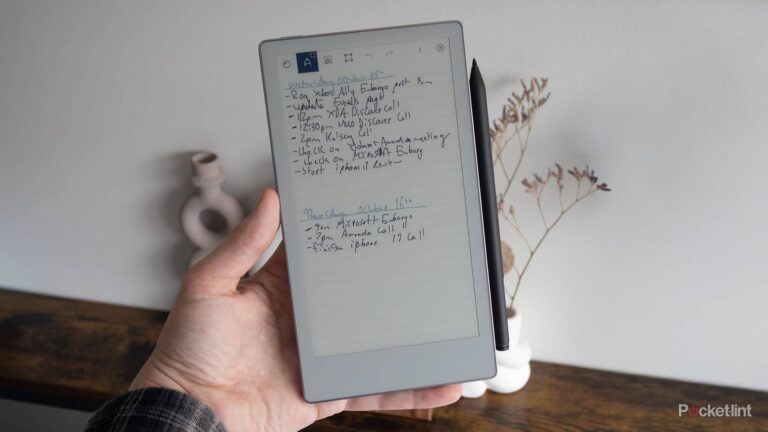 Wednesday October 15th
- Rog Xbox Ally Embargo post 9am
- update Events page
- 12pm XDA Discover Call
- 12:30pm Discover Call
- 2pm Kelsey Call
- Check on Amanda meeting
- check on Microsoft Embargo
- Start iphone 17
Thursday October 16th
- 9am Microsoft Embargo
- 2pm Amanda Call
- Finish iphone 17 Call
Pocketlint